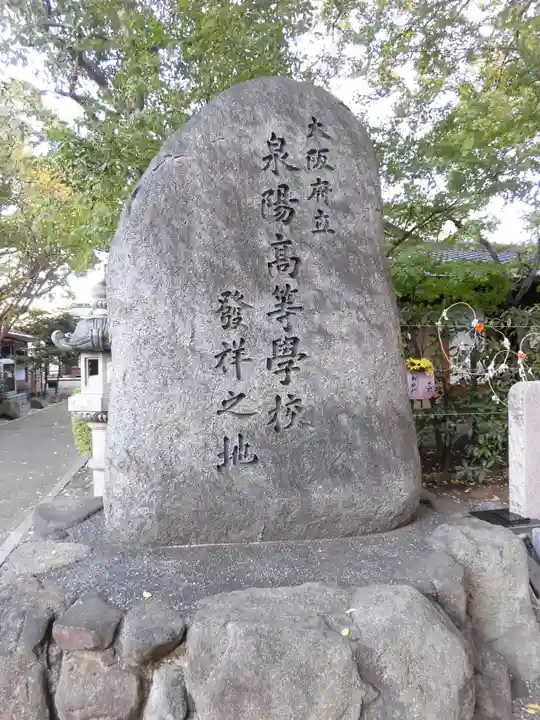 大阪府立
泉陽高等學校
發祥之地